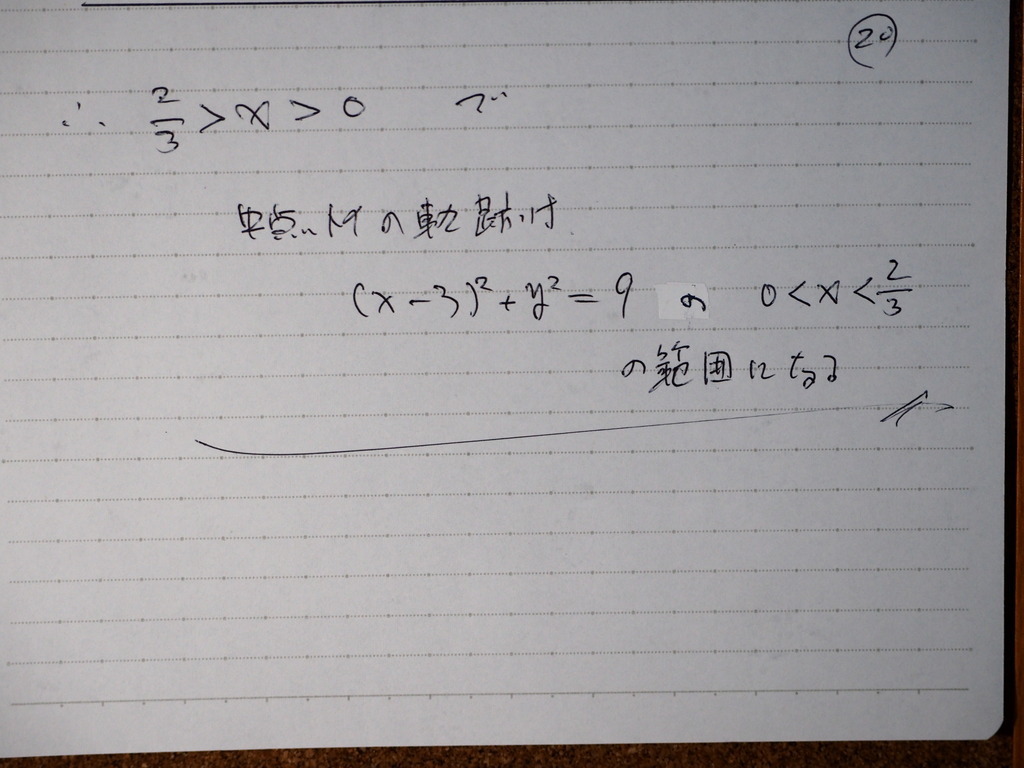 ⑳
∴ 2/3 > x > 0 で
中点Mの軌跡は
(x-3)²+y²=9 の 0<x<2/3
の範囲になる